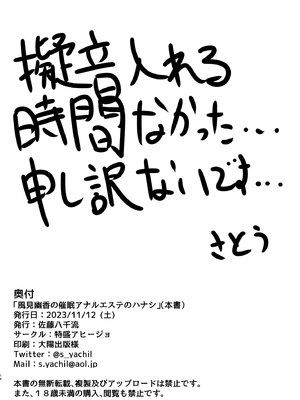 擬音入れる
時間なかった…
申し訳ないです…
さとう
奥付
「風見幽香の催眠アナルエステのハナシ」(本書)
発行日：2023/11/12（土）
発行：佐藤八千流
サークル：特盛アヒージョ
印刷：大陽出版様
Twitter：@s_yachil
Mail：s.yachil@aol.jp
本書の無断転載、複製及びアップロードは禁止です。
また、１８歳未満の購入、閲覧も禁止です。